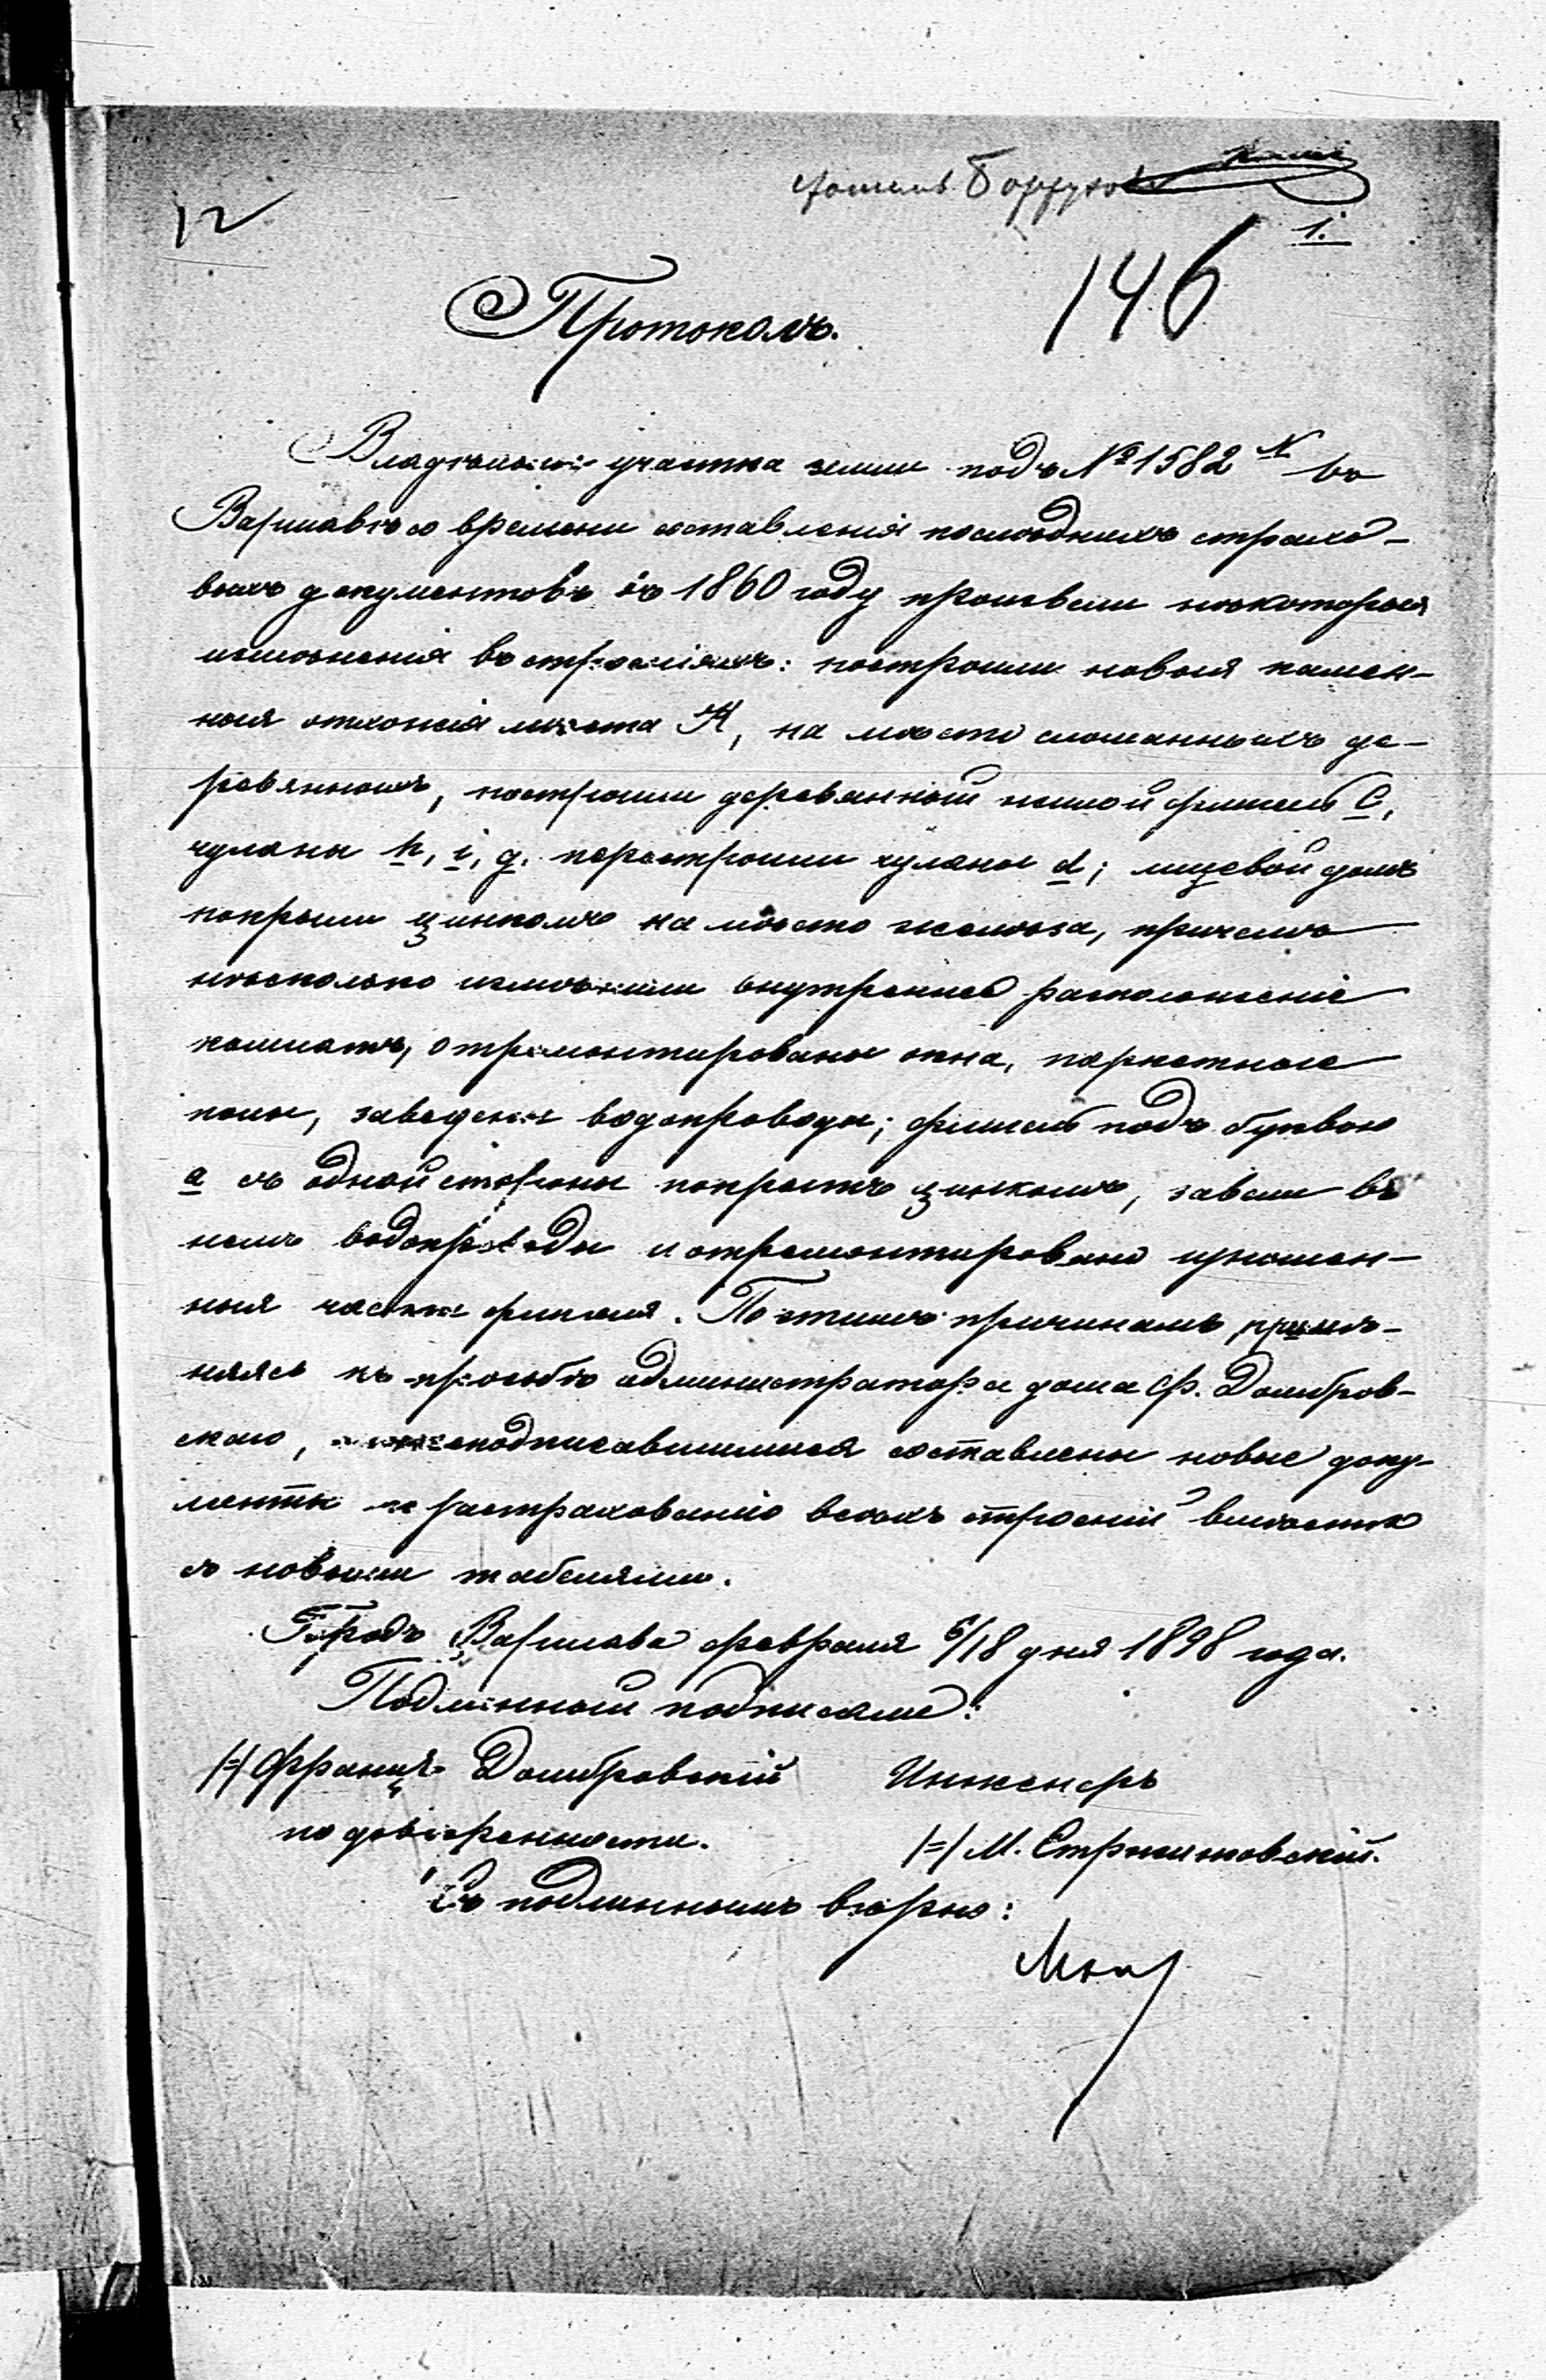 12
1.
146
Протоколъ.
Владѣльцы участка земли подъ № 1582 N въ
Варшавѣ со времени составленія послѣднихъ страхо-
выхъ документовъ въ 1860 году произвели нѣкоторыя
измѣненія въ строеніяхъ: построили новыя камен-
ныя отхожія мѣста А, на мѣсто сломанныхъ де-
ревянныхъ, построили деревянный жилой флигель С,
чуланы h, i, g. перестроили чуланы d; лицевой домъ
покрыли цинкомъ на мѣсто желѣза, причемъ
нѣсколько измѣнили внутреннее расположеніе
комнатъ, отремонтированы окна, паркетные
полы, заведены водопроводы; флигель подъ буквою
а съ одной стороны покрытъ цинкомъ, завели въ
немъ водопроводы и отремонтировано изношен-
ныя части флигеля. По этимъ причинамъ, примѣ-
няясь къ просьбѣ администратора дома Ф. Домбров-
скаго, нижеподписавшимися составлены новые доку-
менты по застрахованію всѣхъ строеній вмѣстѣ
съ новыми табелями.
Городъ Варшава февраля 6/18 дня 1898 года.
Подлинный подписали:
/-/ Францъ Домбровскій Инженеръ
по довѣренности. /-/ М. Стржижовскій.
Съ подлиннымъ вѣрно: